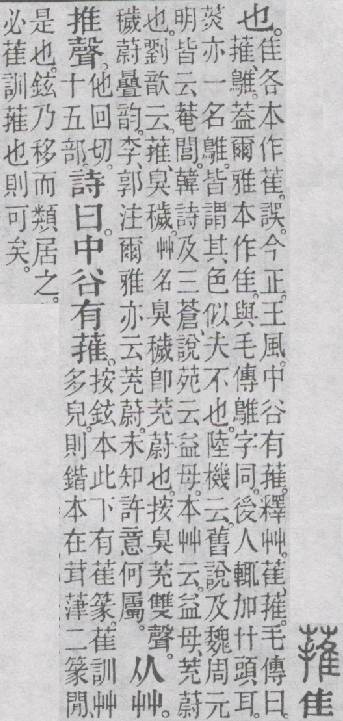 蓷 隹
也。隹各本作萑。誤。今正。王風。中谷有蓷。釋艸。萑、蓷。毛傳曰。
蓷、鵻。葢爾雅本作隹。與毛傳鵻字同。後人輒加什頭耳。
菼亦一名鵻。皆謂其色似夫不也。陸機云。舊說及魏周元
明皆云菴閭。韓詩及三蒼說苑云益母。本艸云。益母、茺蔚
也。劉歆云。蓷、臭穢。艸名。臭穢卽茺蔚也。按臭茺雙聲。
穢蔚疊韵。李郭注爾雅亦云茺蔚。未知許意何屬。从艸。
推聲。他回切。十五部。詩曰。中谷有蓷。按鉉本此下有萑篆。萑訓艸
多皃。則鍇本在茸葏二篆閒、
是也。鉉乃移而類居之。
必萑訓蓷也則可矣。